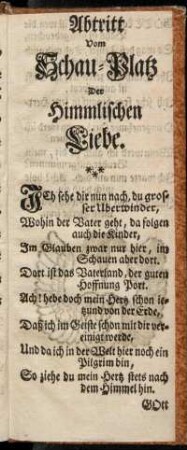 Abtritt
Vom
Schau-Platz
Der
Himmlischen
Liebe.
JCh sehe dir nun nach, du gros-
ser Uberwinder,
Wohin der Vater geht, da folgen
auch die Kinder,
Im Glauben zwar nur hier, im
Schauen aber dort.
Dort ist das Vaterland, der guten
Hoffnung Port.
Ach! hebe doch mein Hertz schon ie-
tzund von der Erde,
Daß ich im Geiste schon mit dir ver-
einigt werde,
Und da ich in der Welt hier noch ein
Pilgrim bin,
So ziehe du mein Hertz stets nach
dem Himmel hin.
GOtt